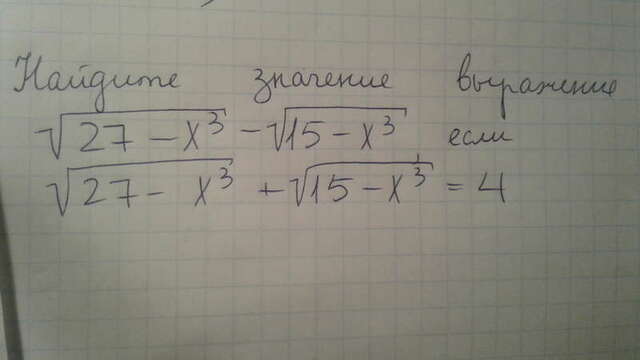 Найдите значение выражение
√27 - x³ - √15 - x³ если
√27 - x³ + √15 - x³ = 4